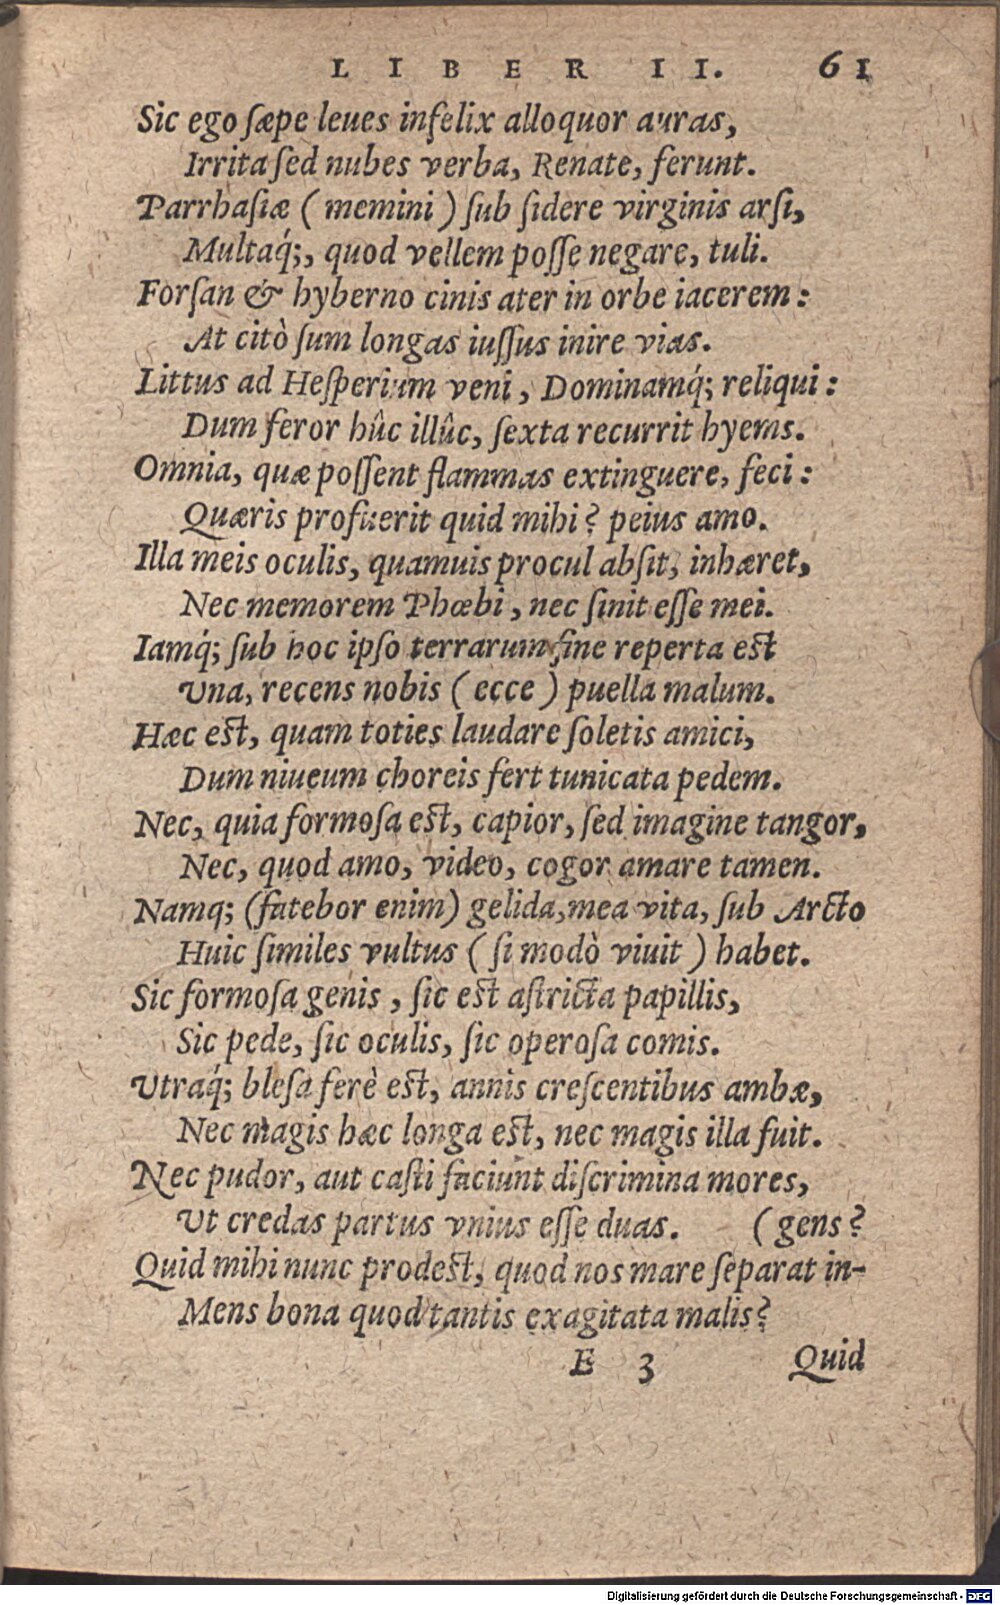 LIBER II. 61
Sic ego sæpe leues infelix alloquor auras,
Irrita sed nubes verba, Renate, ferunt.
Parrhasiæ ( memini ) sub sidere virginis arsi,
Multaq́;, quod vellem posse negare, tuli.
Forsan & hyberno cinis ater in orbe iacerem :
At citò sum longas iussus inire vias.
Littus ad Hesperium veni , Dominamq́; reliqui :
Dum feror hûc illûc, sexta recurrit hyems.
Omnia, quæ possent flammas extinguere, feci :
Quæris profuerit quid mihi? peius amo.
Illa meis oculis, quamuis procul absit, inhæret,
Nec memorem Phœbi , nec sinit esse mei.
Iamq́; sub hoc ipso terrarum fine reperta est
Vna, recens nobis ( ecce ) puella malum.
Hæc est, quam toties laudare soletis amici,
Dum niueum choreis fert tunicata pedem.
Nec, quia formosa est, capior, sed imagine tangor,
Nec, quod amo, video, cogor amare tamen.
Namq; (fatebor enim) gelida, mea vita, sub Arcto
Huic similes vultus ( si modò viuit ) habet.
Sic formosa genis , sic est astricta papillis,
Sic pede, sic oculis, sic operosa comis.
Vtraq́; blesa ferè est, annis crescentibus ambæ,
Nec magis hæc longa est, nec magis illa fuit.
Nec pudor, aut casti faciunt discrimina mores,
Vt credas partus vnius esse duas. ( gens?
Quid mihi nunc prodest, quod nos mare separat in-
Mens bona quod tantis exagitata malis?
E 3 Quid
Digitalisierung gefördert durch die Deutsche Forschungsgemeinschaft - DFG